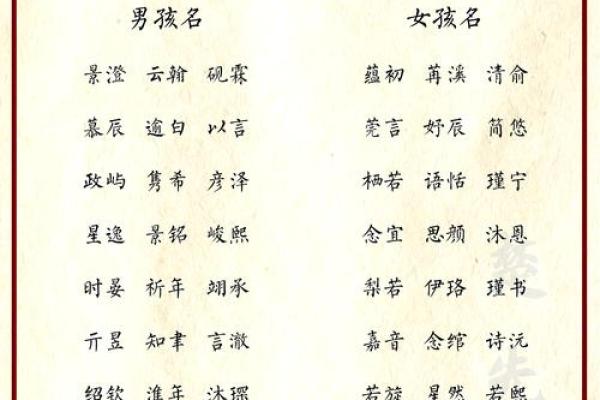 男孩名 女孩名
景澄 云翰 砚霖 蕴初 苒溪 清俞
慕辰 逾白 以言 莞言 妤辰 简悠
政屿 隽希 彦泽 栖若 语恬 瑾宁
星逸 景铭 峻熙 念宜 思颜 沐恩
时晏 祈年 翊承 梨若 伊珞 瑾书
亓昱 知聿 言澈 嘉音 念绾 诗沅
绍钦 淮年 沐琛 若旋 星然 若熙